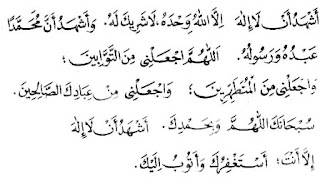 أَشْهَدُ أَنْ لَا إِلٰهَ إِلَّا اللهُ وَحْدَهُ، لَا شَرِيكَ لَهُ. وَأَشْهَدُ أَنَّ مُحَمَّدًا
عَبْدُهُ وَرَسُولُهُ. اَللّٰهُمَّ اجْعَلْنِي مِنَ التَّوَّابِينَ؛
وَاجْعَلْنِي مِنَ الْمُتَطَهِّرِينَ؛ وَاجْعَلْنِي مِنْ عِبَادِكَ الصَّالِحِينَ.
سُبْحَانَكَ اللّٰهُمَّ وَبِحَمْدِكَ. أَشْهَدُ أَنْ لَا إِلٰهَ
إِلَّا أَنْتَ؛ أَسْتَغْفِرُكَ وَأَتُوبُ إِلَيْكَ.